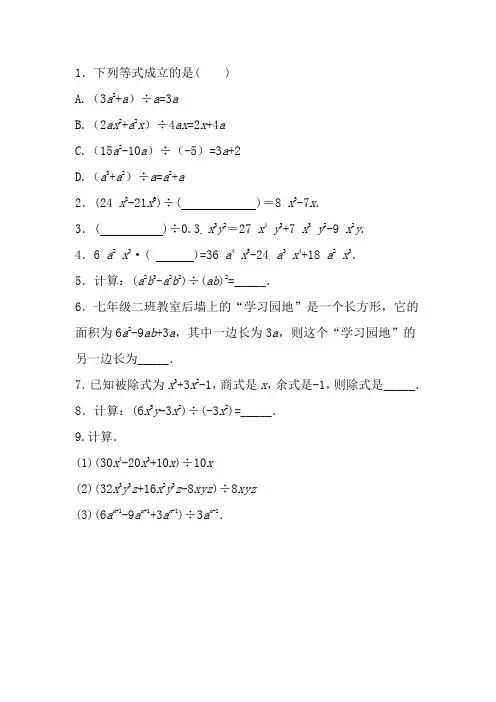 1．下列等式成立的是(　　)
A.（3a²+a）÷a=3a
B.（2ax²+a²x）÷4ax=2x+4a
C.（15a²-10a）÷（-5）=3a+2
D.（a³+a²）÷a=a²+a
2．(24 x⁸-21x⁵)÷(__________)＝8 x³-7x.
3．(________)÷0.3 x³y²＝27 x⁴ y³+7 x³ y²-9 x²y.
4．6 a² x³·( ______)=36 a⁴ x⁵-24 a³ x⁴+18 a² x³.
5．计算：(a²b³-a²b²)÷(ab)²=_____.
6．七年级二班教室后墙上的“学习园地”是一个长方形，它的
面积为6a²-9ab+3a，其中一边长为3a，则这个“学习园地”的
另一边长为_____.
7.已知被除式为x³+3x²-1，商式是x，余式是-1，则除式是_____.
8．计算：(6x⁵y-3x²)÷(-3x²)=_____.
9.计算.
(1)(30x⁴-20x³+10x)÷10x
(2)(32x³y³z+16x²y³z-8xyz)÷8xyz
(3)(6aⁿ⁺¹-9aⁿ⁺¹+3aⁿ⁻¹)÷3aⁿ⁻¹.